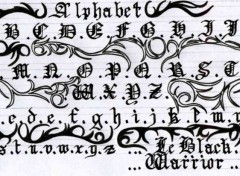 Alphabet
B.C.D.E.F.G.H.I.J
M.N.O.P.Q.R.S.T
W.X.Y.Z
c.d.e.f.g.h.i.j.k.l.m.
s.t.u.v.w.x.y.z ... Le Black
... Warrior ...